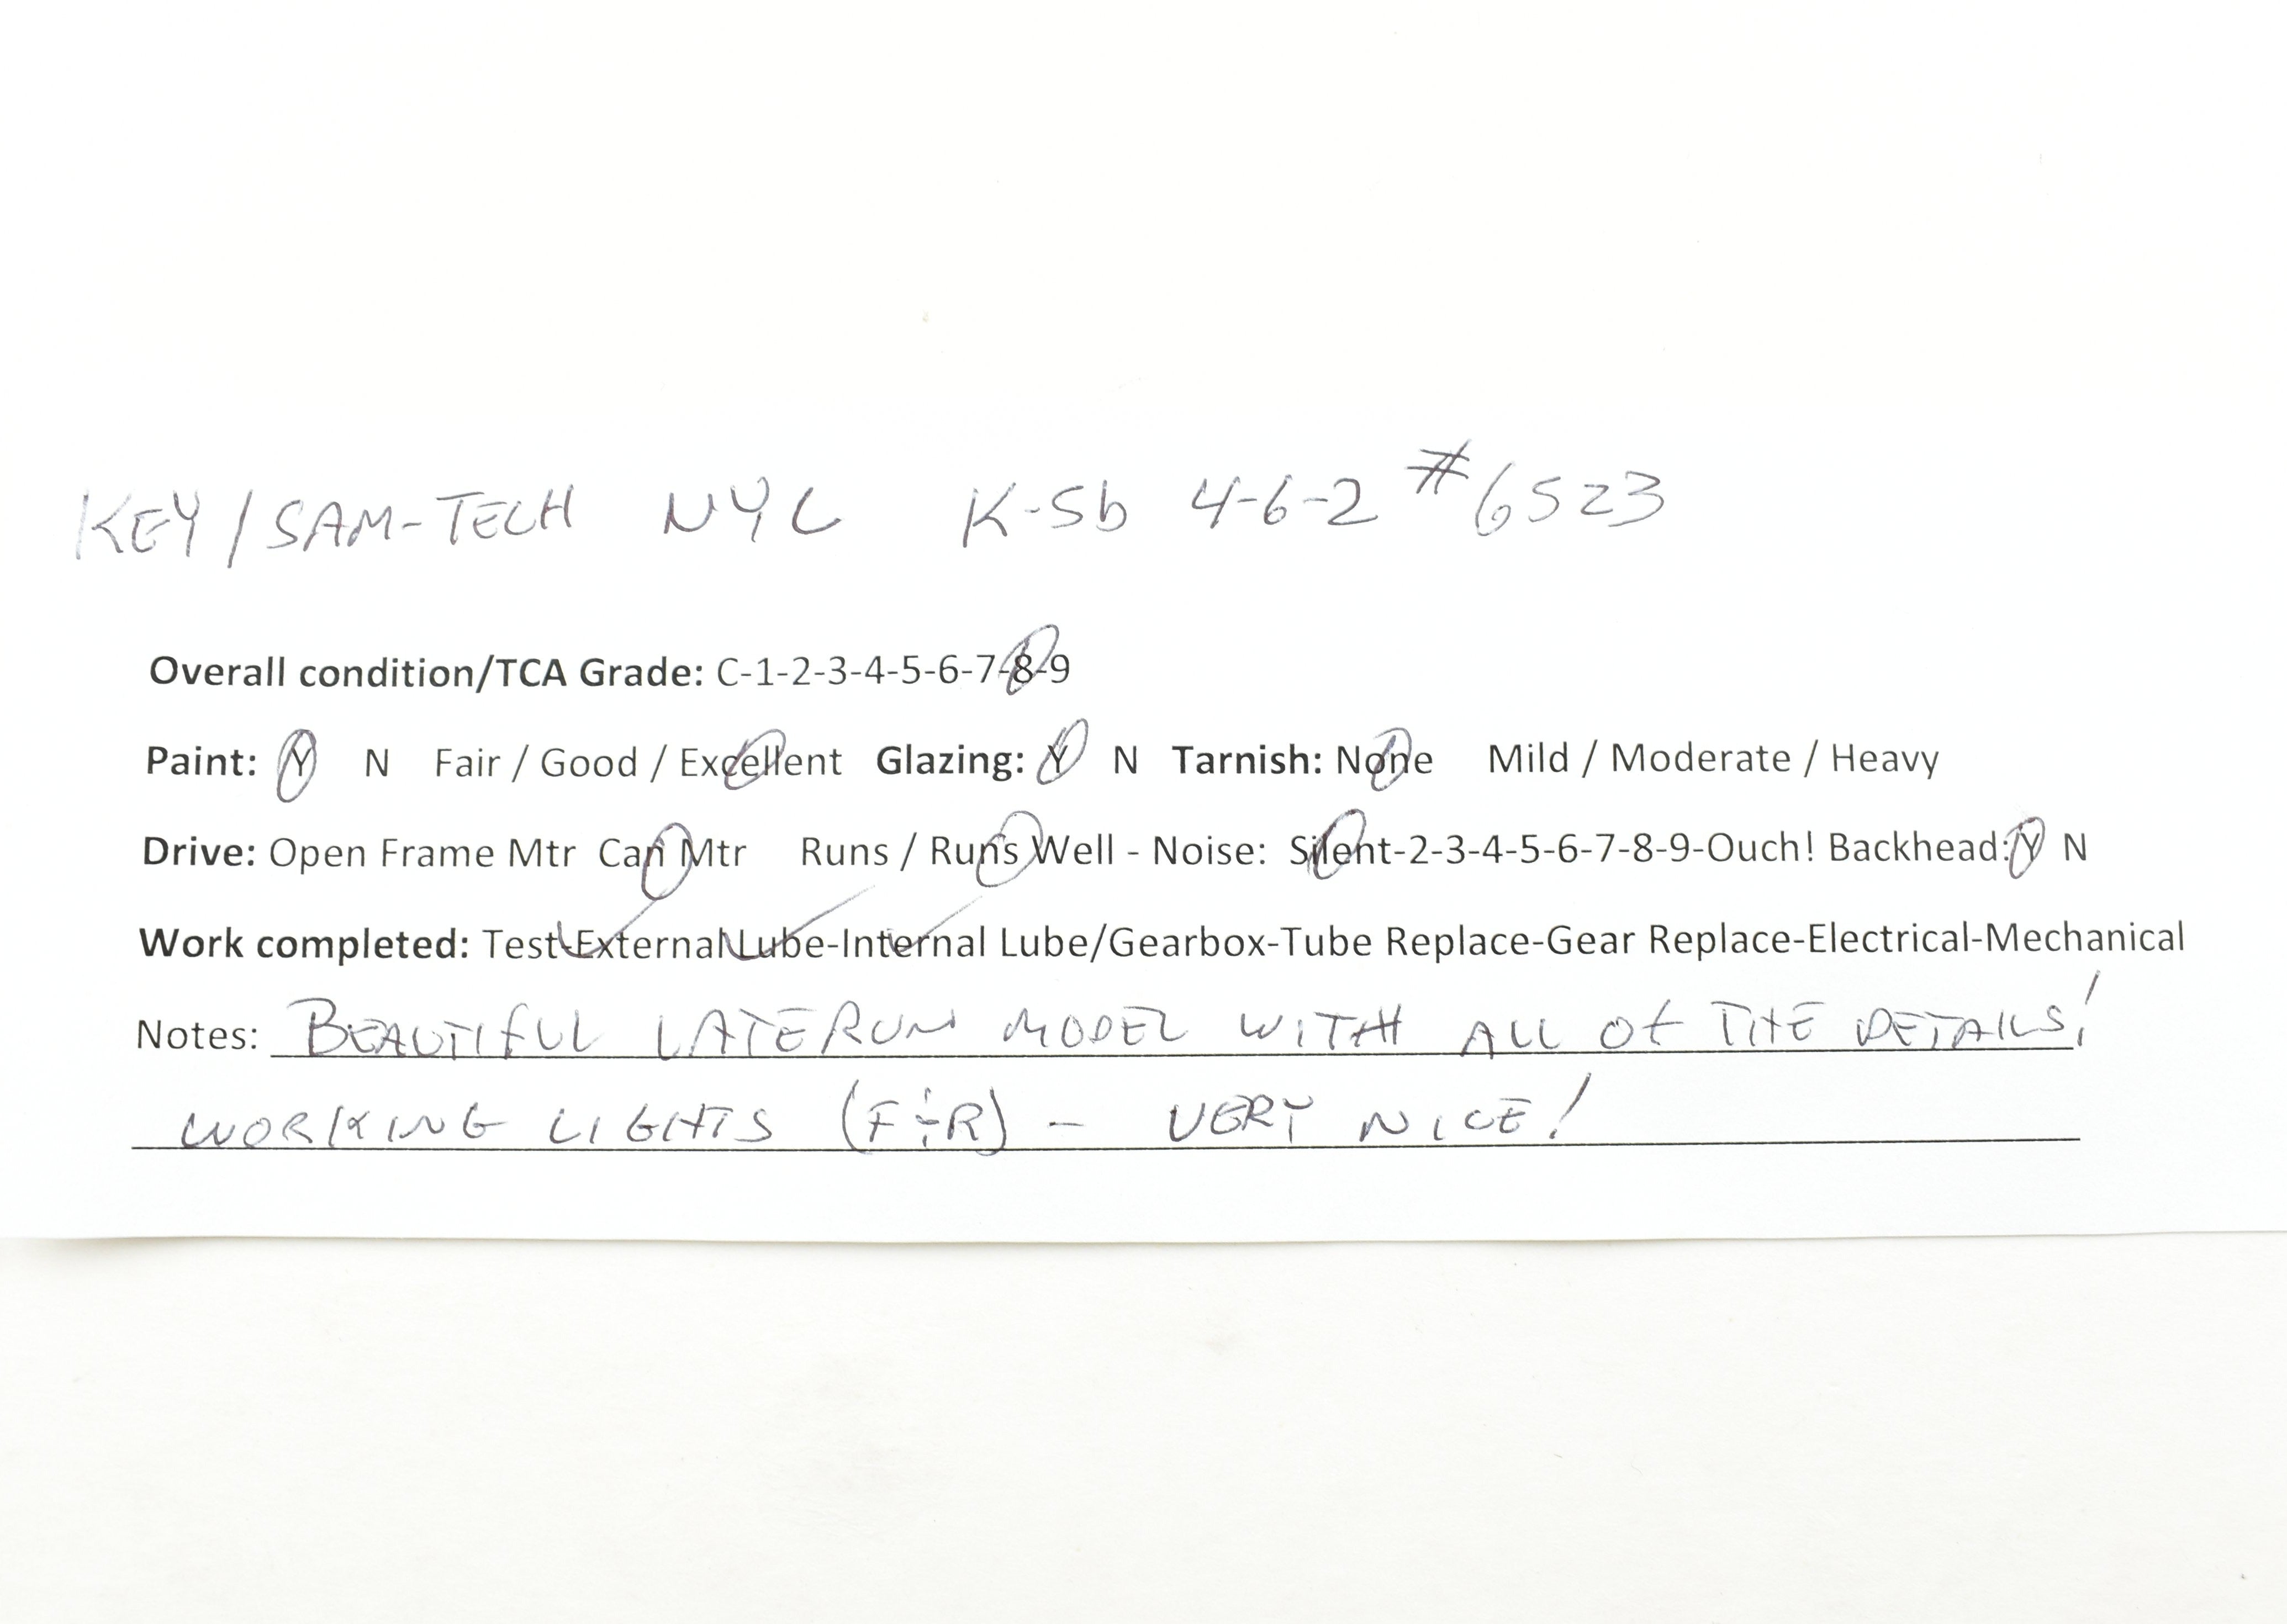 KEY/SAM-TECH NYC K-5b 4-6-2 #6523
Overall condition/TCA Grade: C-1-2-3-4-5-6-7-8-9
Paint: Y N Fair / Good / Excellent Glazing: Y N Tarnish: None Mild / Moderate / Heavy
Drive: Open Frame Mtr Can Mtr Runs / Runs Well - Noise: Silent-2-3-4-5-6-7-8-9-Ouch! Backhead: Y N
Work completed: Test-External Lube-Internal Lube/Gearbox-Tube Replace-Gear Replace-Electrical-Mechanical
Notes: BEAUTIFUL LATE RUN MODEL WITH ALL OF THE DETAILS!
WORKING LIGHTS (F&R) - VERY NICE!